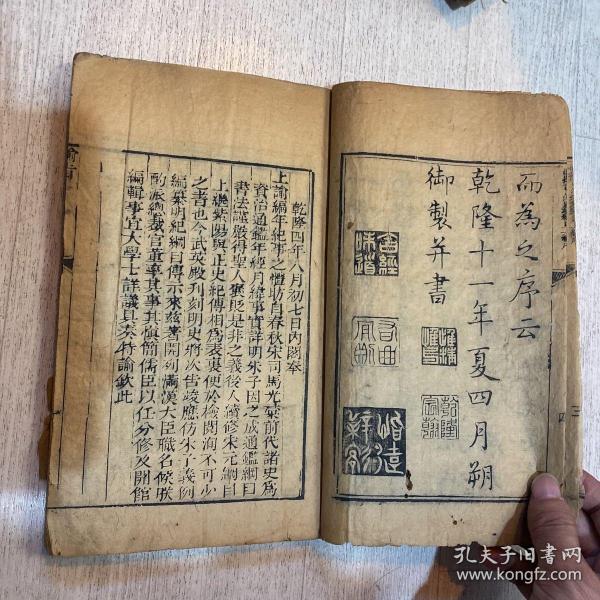 而為之序云
乾隆十一年夏四月朔
御製并書
乾隆
宸翰
乾隆四年八月初七日內閣奉
上諭編年紀事之體昉自春秋宋司馬光彙前代諸史爲
資治通鑑年經月緯事實詳明朱子因之成通鑑綱目
書法謹嚴得聖人褒貶是非之義後人續修宋元綱目
上繼紫陽與正史紀傳相爲表裏便於檢閱洵不可少
之書也今武英殿刊刻明史將次告竣應仿朱子義例
編纂明紀綱目傳示來兹著開列滿漢大臣職名候朕
酌派總裁官董率其事其慎簡儒臣以任分修及開館
編輯事宜大學士詳議具奏特諭欽此
孔夫子旧书网
www.kongfz.com